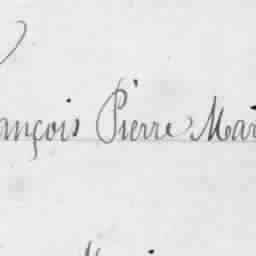 ançois Pierre Mar